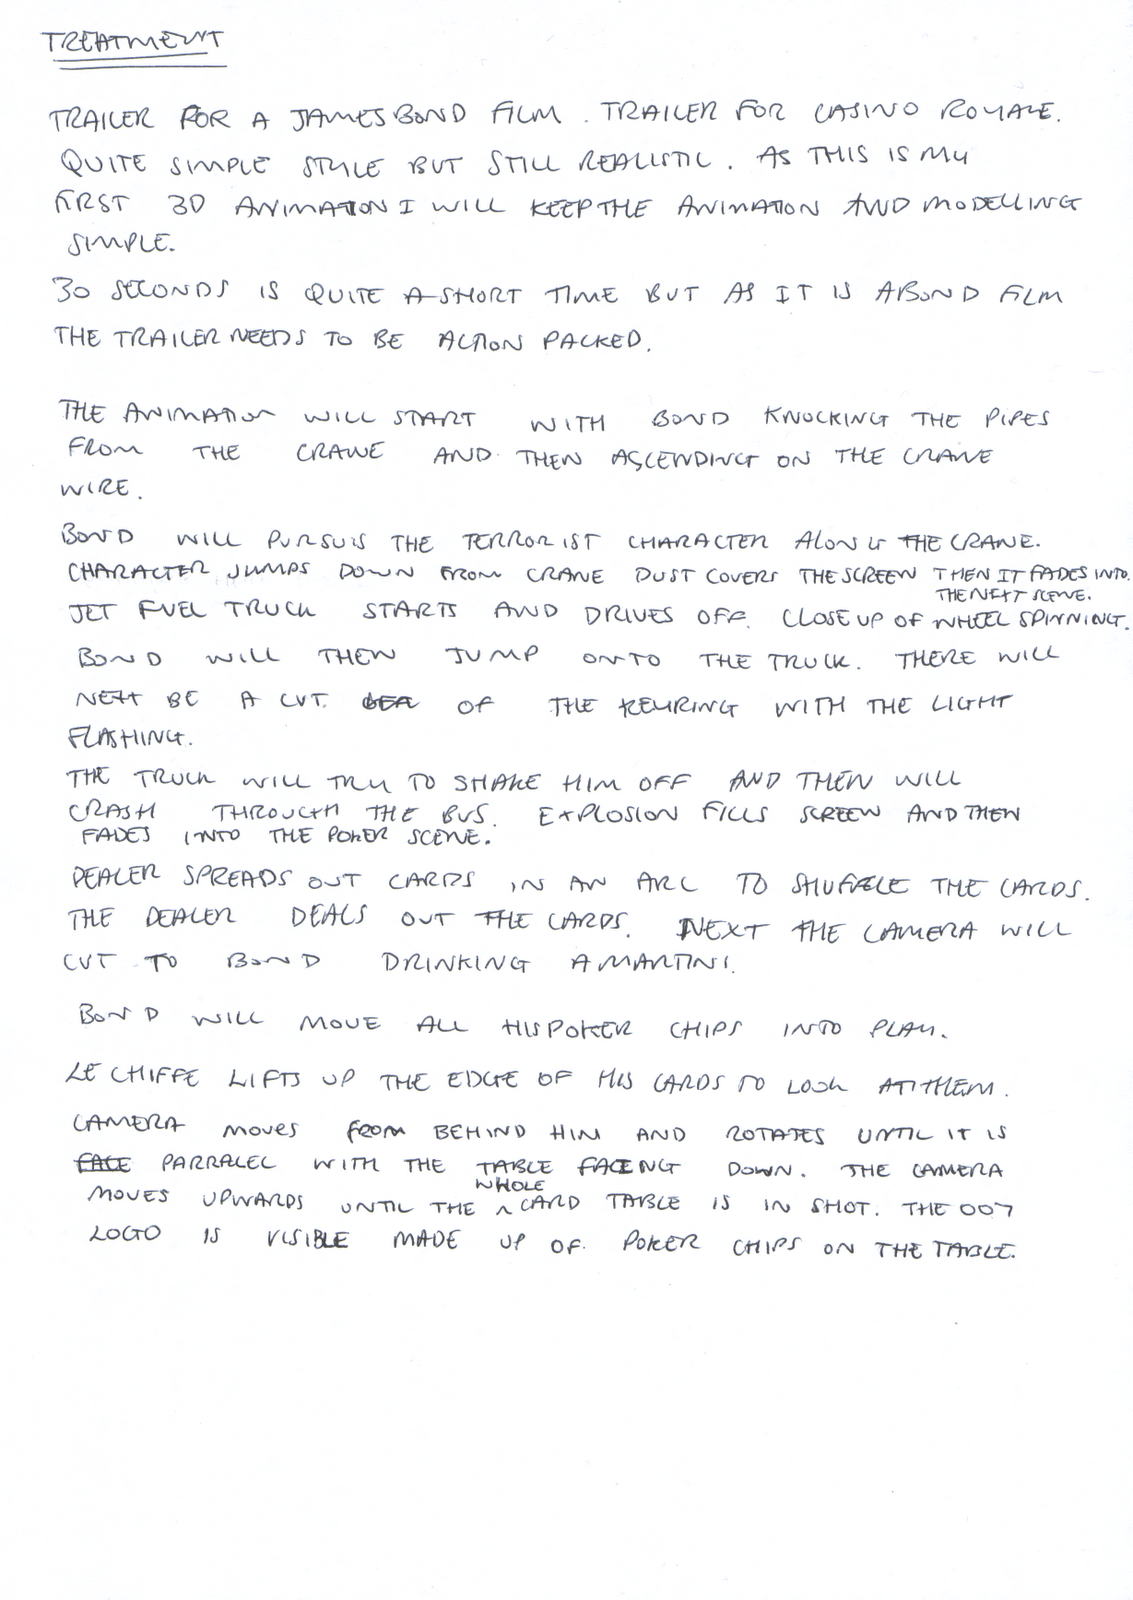 TREATMENT
TRAILER FOR A JAMES BOND FILM. TRAILER FOR CASINO ROYALE.
QUITE SIMPLE STYLE BUT STILL REALISTIC. AS THIS IS MY
FIRST 3D ANIMATION I WILL KEEP THE ANIMATION AND MODELLING
SIMPLE.
30 SECONDS IS QUITE A SHORT TIME BUT AS IT IS A BOND FILM
THE TRAILER NEEDS TO BE ACTION PACKED.
THE ANIMATION WILL START WITH BOND KNOCKING THE PIPES
FROM THE CRANE AND THEN ASCENDING ON THE CRANE
WIRE.
BOND WILL PURSUIS THE TERRORIST CHARACTER ALONG THE CRANE.
CHARACTER JUMPS DOWN FROM CRANE DUST COVERS THE SCREEN THEN IT FADES INTO
THE NEXT SCENE.
JET FUEL TRUCK STARTS AND DRIVES OFF. CLOSE UP OF WHEEL SPINNING.
BOND WILL THEN JUMP ONTO THE TRUCK. THERE WILL
NEXT BE A CUT OF THE KEYRING WITH THE LIGHT
FLASHING.
THE TRUCK WILL TRY TO SHAKE HIM OFF AND THEN WILL
CRASH THROUGH THE BUS. EXPLOSION FILLS SCREEN AND THEN
FADES INTO THE POKER SCENE.
DEALER SPREADS OUT CARDS IN AN ARC TO SHUFFLE THE CARDS.
THE DEALER DEALS OUT THE CARDS. NEXT THE CAMERA WILL
CUT TO BOND DRINKING A MARTINI.
BOND WILL MOVE ALL HIS POKER CHIPS INTO PLAY.
LE CHIFFE LIFTS UP THE EDGE OF HIS CARDS TO LOOK AT THEM.
CAMERA MOVES FROM BEHIND HIM AND ROTATES UNTIL IT IS
FACE PARRALEL WITH THE TABLE FACING DOWN. THE CAMERA
MOVES UPWARDS UNTIL THE WHOLE CARD TABLE IS IN SHOT. THE 007
LOGO IS VISIBLE MADE UP OF POKER CHIPS ON THE TABLE.